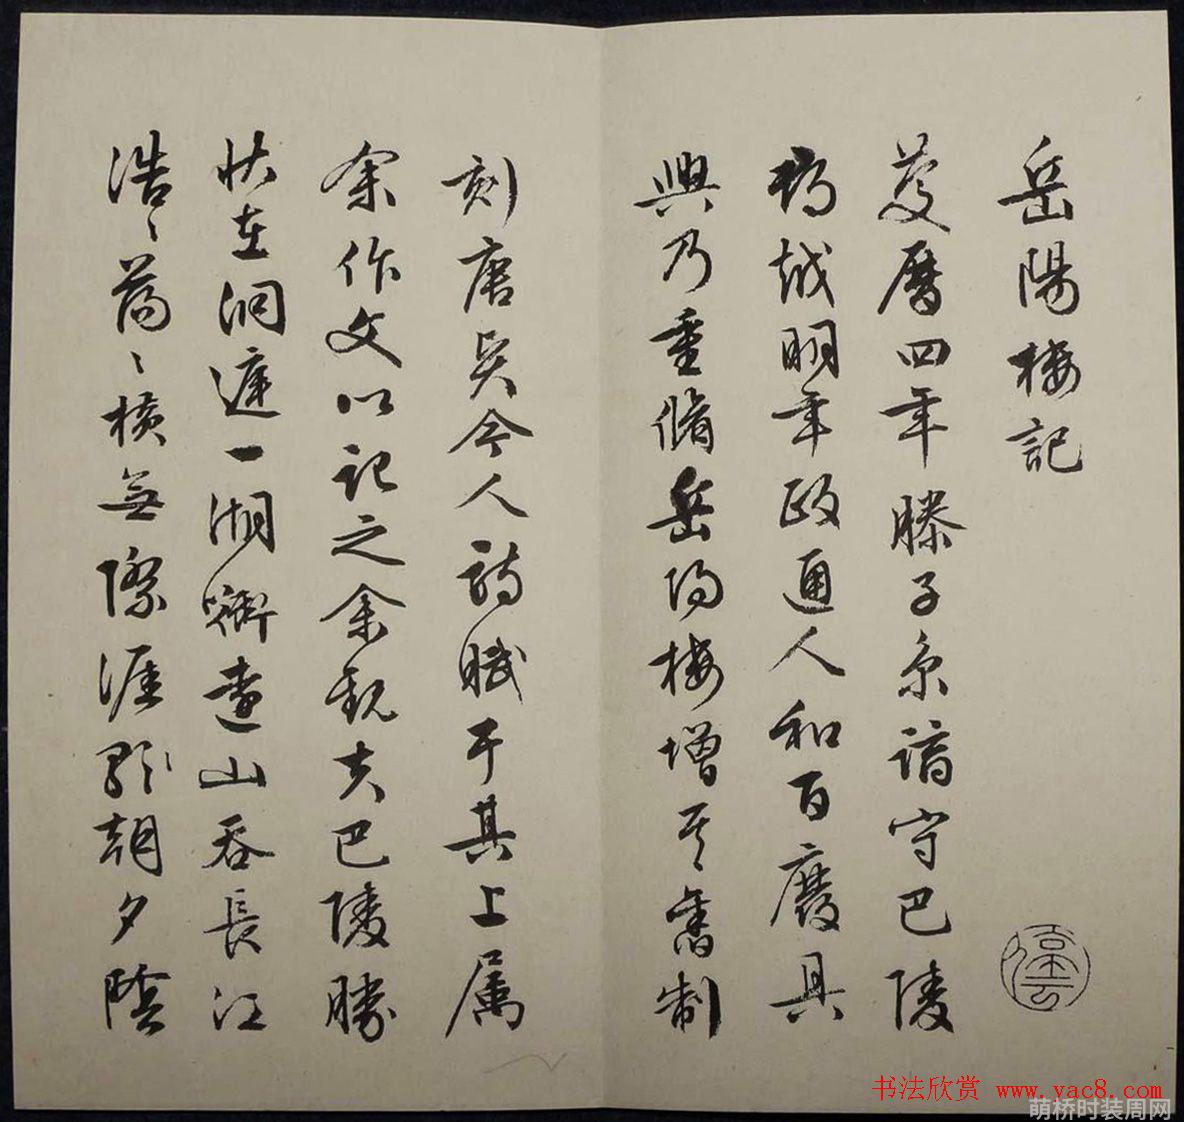 岳陽樓記
慶曆四年滕子京謫守巴陵
郡越明年政通人和百廢具
興乃重脩岳陽樓增其舊制
刻唐賢今人詩賦于其上属
余作文以記之余觀夫巴陵勝
状在洞庭一湖銜遠山吞長江
浩〻蕩〻橫無際涯朝夕陰
书法欣赏 www.yac8.com
萌桥时装周网